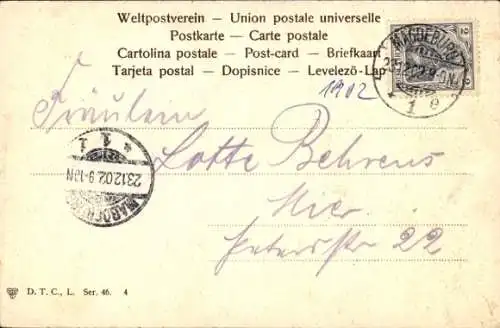 Weltpostverein – Union postale universelle
Postkarte – Carte postale
Cartolina postale – Post-card – Briefkaart
Tarjeta postal – Dopisnice – Levelező-Lap
1902
MAGDEBURG
1 e
2
Fräulein
* 1 f
23.12.02. 9-10N
MAGDEBURG
Lotte Behrens
Hier
Petersstr 22
D. T. C., L. Ser. 46. 4